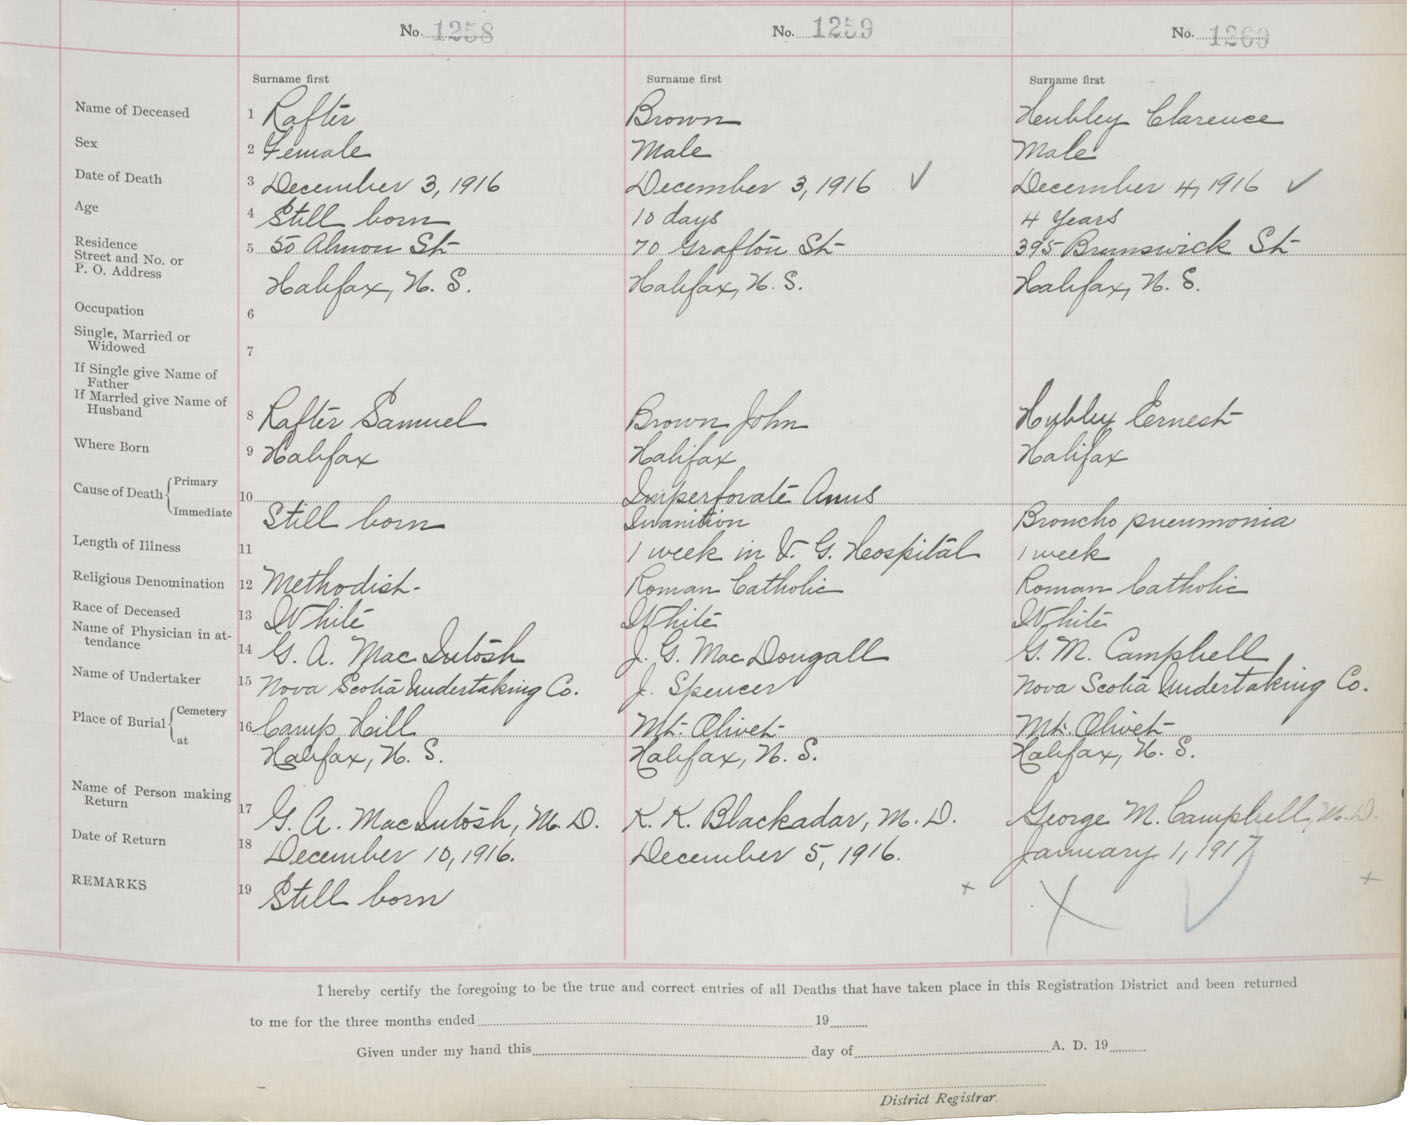 No. 1258 No. 1259 No. 1260
Surname first Surname first Surname first
Name of Deceased 1 Rafter Brown Heubley Clarence
Sex 2 Female Male Male
Date of Death 3 December 3, 1916 December 3, 1916 ✓ December 4, 1916 ✓
Age 4 Still born 10 days 4 Years
Residence
Street and No. or 5 50 Almon St 70 Grafton St 395 Brunswick St
P. O. Address Halifax, N. S. Halifax, N. S. Halifax, N. S.
Occupation 6
Single, Married or
Widowed 7
If Single give Name of
Father
If Married give Name of
Husband 8 Rafter Samuel Brown John Hubley Ernest
Where Born 9 Halifax Halifax Halifax
Cause of Death { Primary 10 Imperforate Anus
Immediate Still born Inanition Broncho pneumonia
Length of Illness 11 1 week in V. G. Hospital 1 week
Religious Denomination 12 Methodist. Roman Catholic Roman Catholic
Race of Deceased 13 White White White
Name of Physician in at-
tendance 14 G. A. MacIntosh J. G. MacDougall G. M. Campbell
Name of Undertaker 15 Nova Scotia Undertaking Co. J. Spencer Nova Scotia Undertaking Co.
Place of Burial { Cemetery 16 Camp Hill Mt. Olivet Mt. Olivet
at Halifax, N. S. Halifax, N. S. Halifax, N. S.
Name of Person making
Return 17 G. A. MacIntosh, M. D. K. K. Blackadar, M. D. George M. Campbell, M. D.
Date of Return 18 December 10, 1916. December 5, 1916. January 1, 1917
REMARKS 19 Still born
I hereby certify the foregoing to be the true and correct entries of all Deaths that have taken place in this Registration District and been returned
to me for the three months ended 19
Given under my hand this day of A. D. 19
District Registrar.